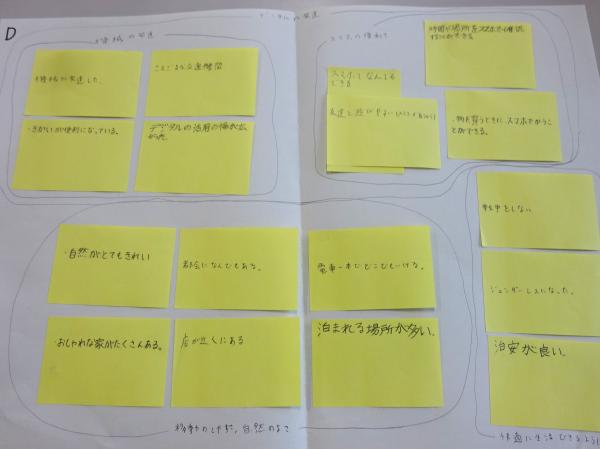 D
デジタルの発達
機械の発達
・機械が発達した。
・きかいが便利になっている。
デジタルの活用の幅が広
がった
スマホの便利さ
時間や場所をスマホで確認
することができる
スマホでなんでも
できる
友達と遊びやすい
・物を買うときに、スマホでかうこ
とができる。
・自然がとてもきれい
都会になんでもある。
電車一本でどこでもいける。
・おしゃれな家がたくさんある。
店が近くにある
泊まれる場所が多い。
移動のしやすさ、自然のよさ
戦争をしない
ジェンダーレスになった。
治安が良い。
快適に生活できるように